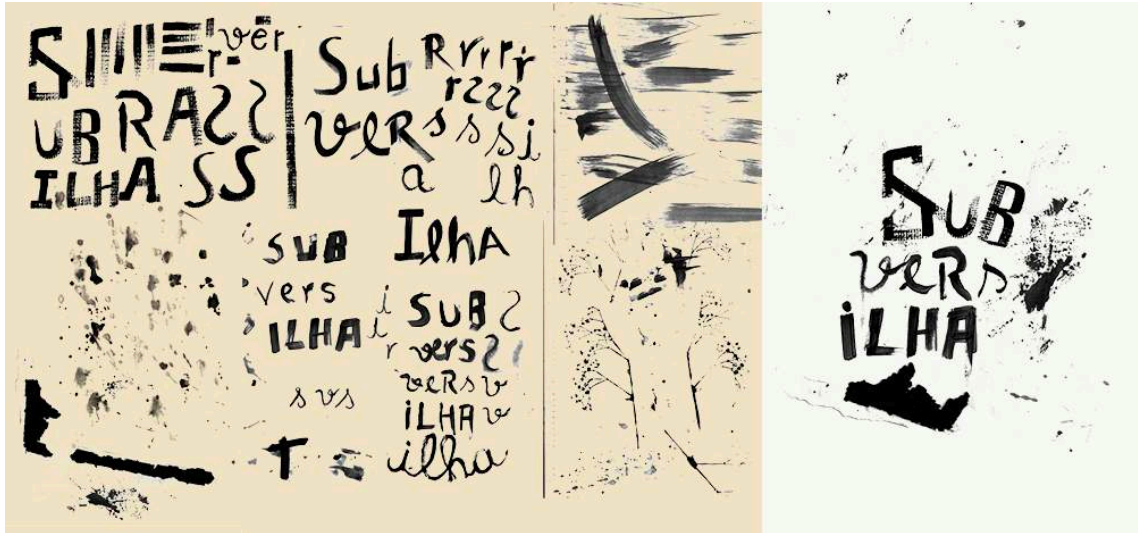 S
vër
r
UBRASS
ILHA SS
Sub
Rrrrr
rzzss
veR
ssssi
a lh
IlhA
SUB
vers
ILHA
svs
T
i
i
r
SUBS
versS
veRsv
iLHAv
ilha
SUB
veRs
iLHA